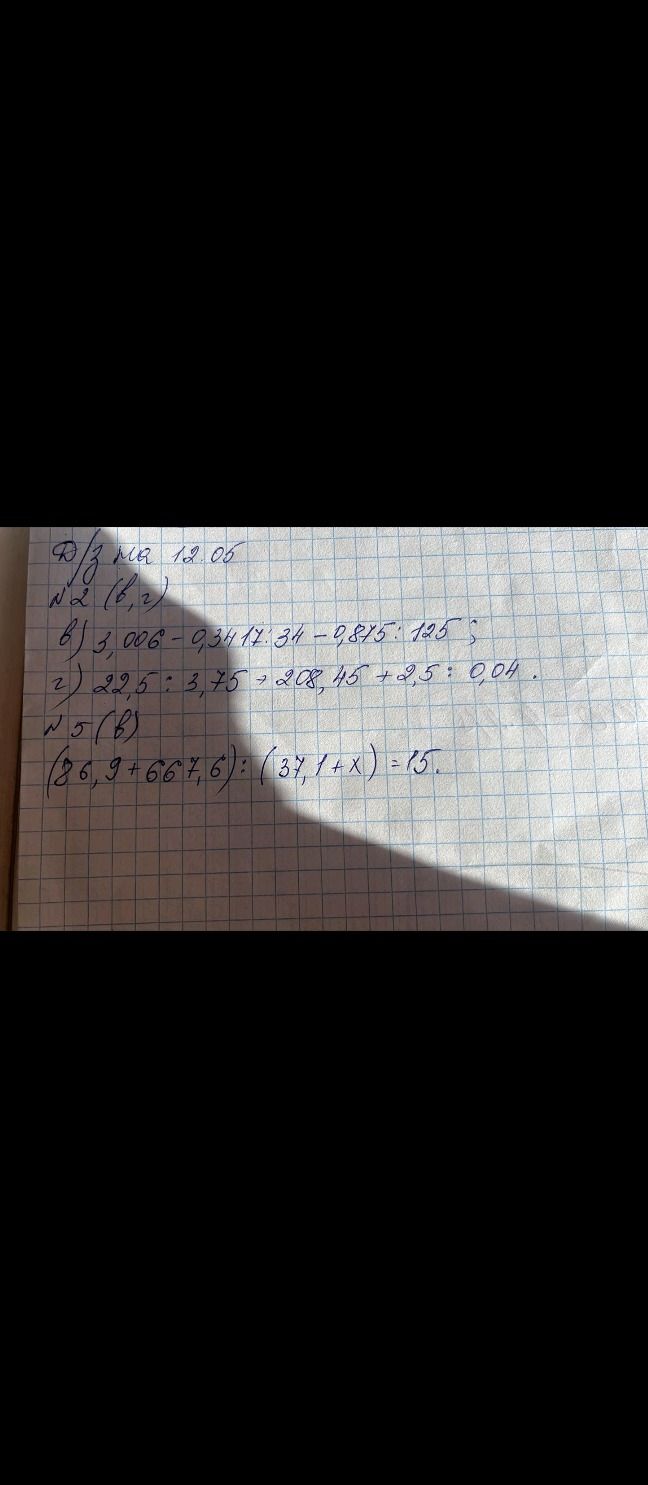 Д/з на 12.05
№2 (в, г)
в) 3,006 - 0,3417:34 - 0,875:125;
г) 22,5 : 3,75 + 208,45 + 2,5 : 0,04.
№5 (в)
(86,9+667,6):(37,1+x)=15.